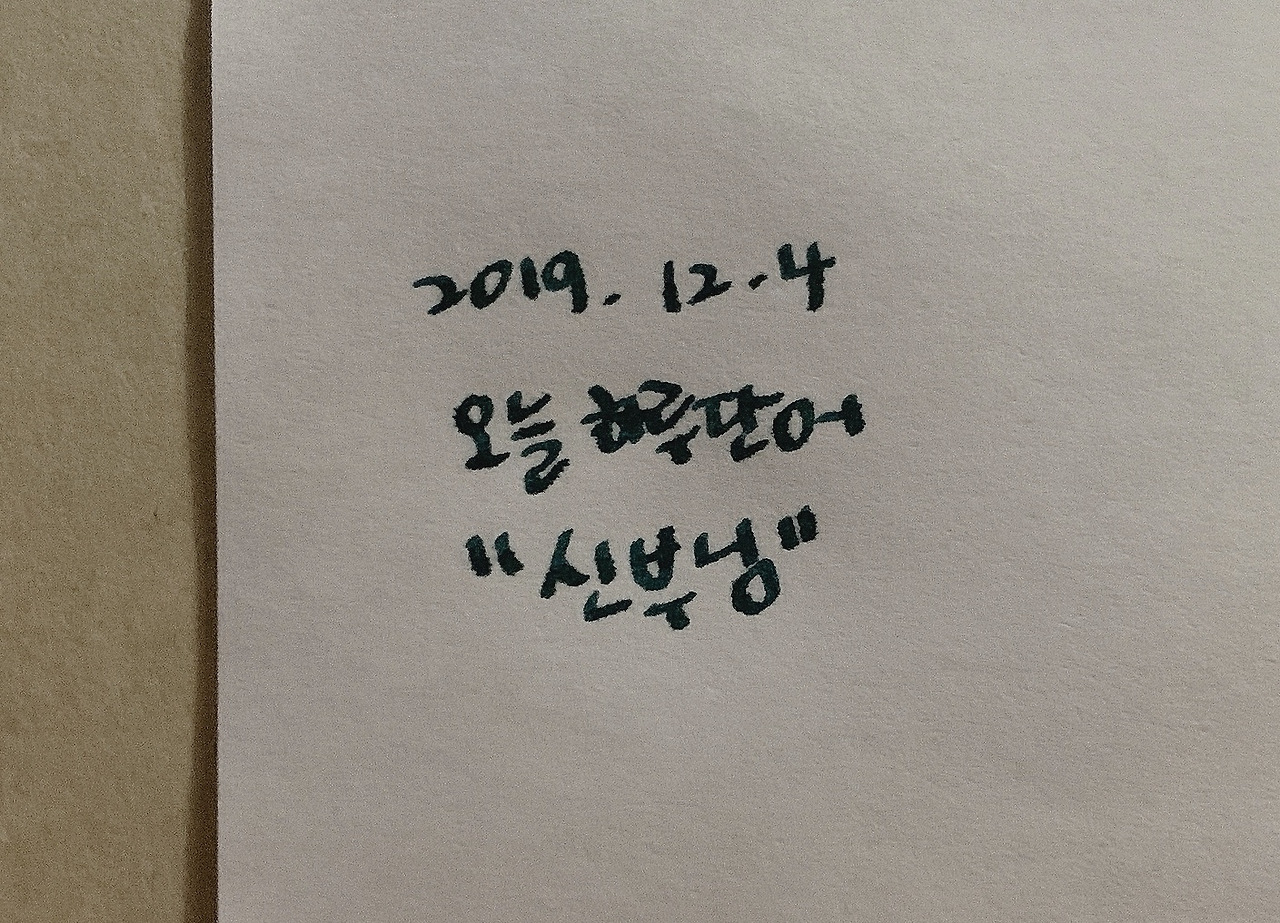 2019. 12. 4
오늘 하루단어
"신부넝"